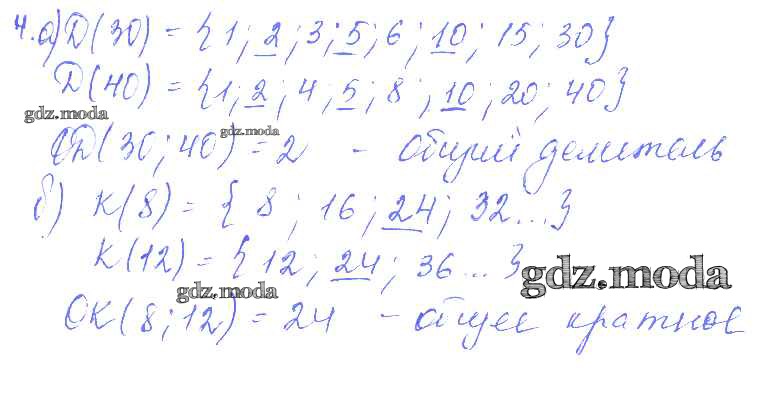 4. а) D(30) = {1; 2; 3; 5; 6; 10; 15; 30}
D(40) = {1; 2; 4; 5; 8; 10; 20; 40}
gdz.moda
gdz.moda
OD(30; 40) = 2 - общий делитель
б) К(8) = { 8; 16; 24; 32...}
К(12) = {12; 24; 36...}
gdz.moda
gdz.moda
ОК(8; 12) = 24 - общее кратное